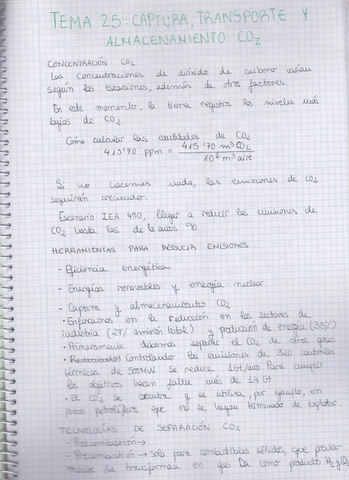 TEMA 25: CAPTURA, TRANSPORTE Y
ALMACENAMIENTO CO2
CONCENTRACIÓN CO2
Las concentraciones de dióxido de carbono varían
según las estaciones, además de otros factores.
En este momento, la tierra registra los niveles más
bajos de CO2.
Cómo calcular las cantidades de CO2
415'70 ppm = 415'70 m³ CO2
10⁶ m³ aire
Si no hacemos nada, las emisiones de CO2
seguirán creciendo.
Escenario IEA 450, llegar a reducir las emisiones de
CO2 hasta las de los años 90
HERRAMIENTAS PARA REDUCIR EMISIONES
- Eficiencia energética
- Energías renovables y energía nuclear
- Captura y almacenamiento CO2
• Enfocarnos en la reducción en los sectores de
industria (27% emisión total) y producción de energía (35%)
• Primeramente debemos separar el CO2 de otros gases
• Controlando las emisiones de 320 centrales
térmicas de 500MW se reduce 1Gt/año. Para cumplir
los objetivos hacen falta más de 14 Gt
• El CO2 se y se utiliza, por ejemplo, en
pozos petrolíferos que no se hayan terminado de explotar
TECNOLOGÍAS DE SEPARACIÓN CO2
- Postcombustión →
- Precombustión → solo para combustibles sólidos, que
se transforman en gas. Da como producto H2 y CO2